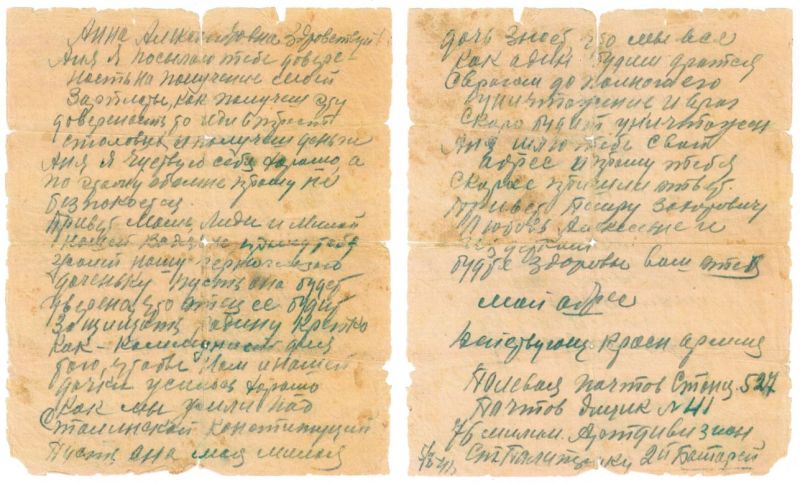 Анна Александровна Здравствуй!
Аня я посылаю тебе довере-
ность на получение моей
Зарплаты, как получиш эту
довереность то иди в трест
столовых и получиш деньги
Аня я чуствую себя хорошо, а
по этому обомне прошу не
безпокоется.
Привет Маме, Лиде и Милой
нашей
нашу черноглазую
доченьку пусть она будет
уверена что отец ее будит
Защищать Родину крепко
Как - Коммунист для
того, чтобы Вам и нашей
дочки жилось хорошо
Как мы жили над
Сталинской Конституций
Пусть она моя милая
дочь знает что мы все
Как один будим дратся
Сврагом до полного его
уничтожение и враг
Скоро будит уничтожен
Аня шлю тебе свой
адрес и прошу тебя
Скорее пришли ответ.
Привет Петру Захаровичу
Любовь Алексевне и
их детям
будте Здоровы ваш отец
мой адрес
Действующ. Красн армия
Полевая почтов Станц. 527
Почтов Ящик № 41
76 милим. Артдивизион
Ст Политруку 2й Батареи